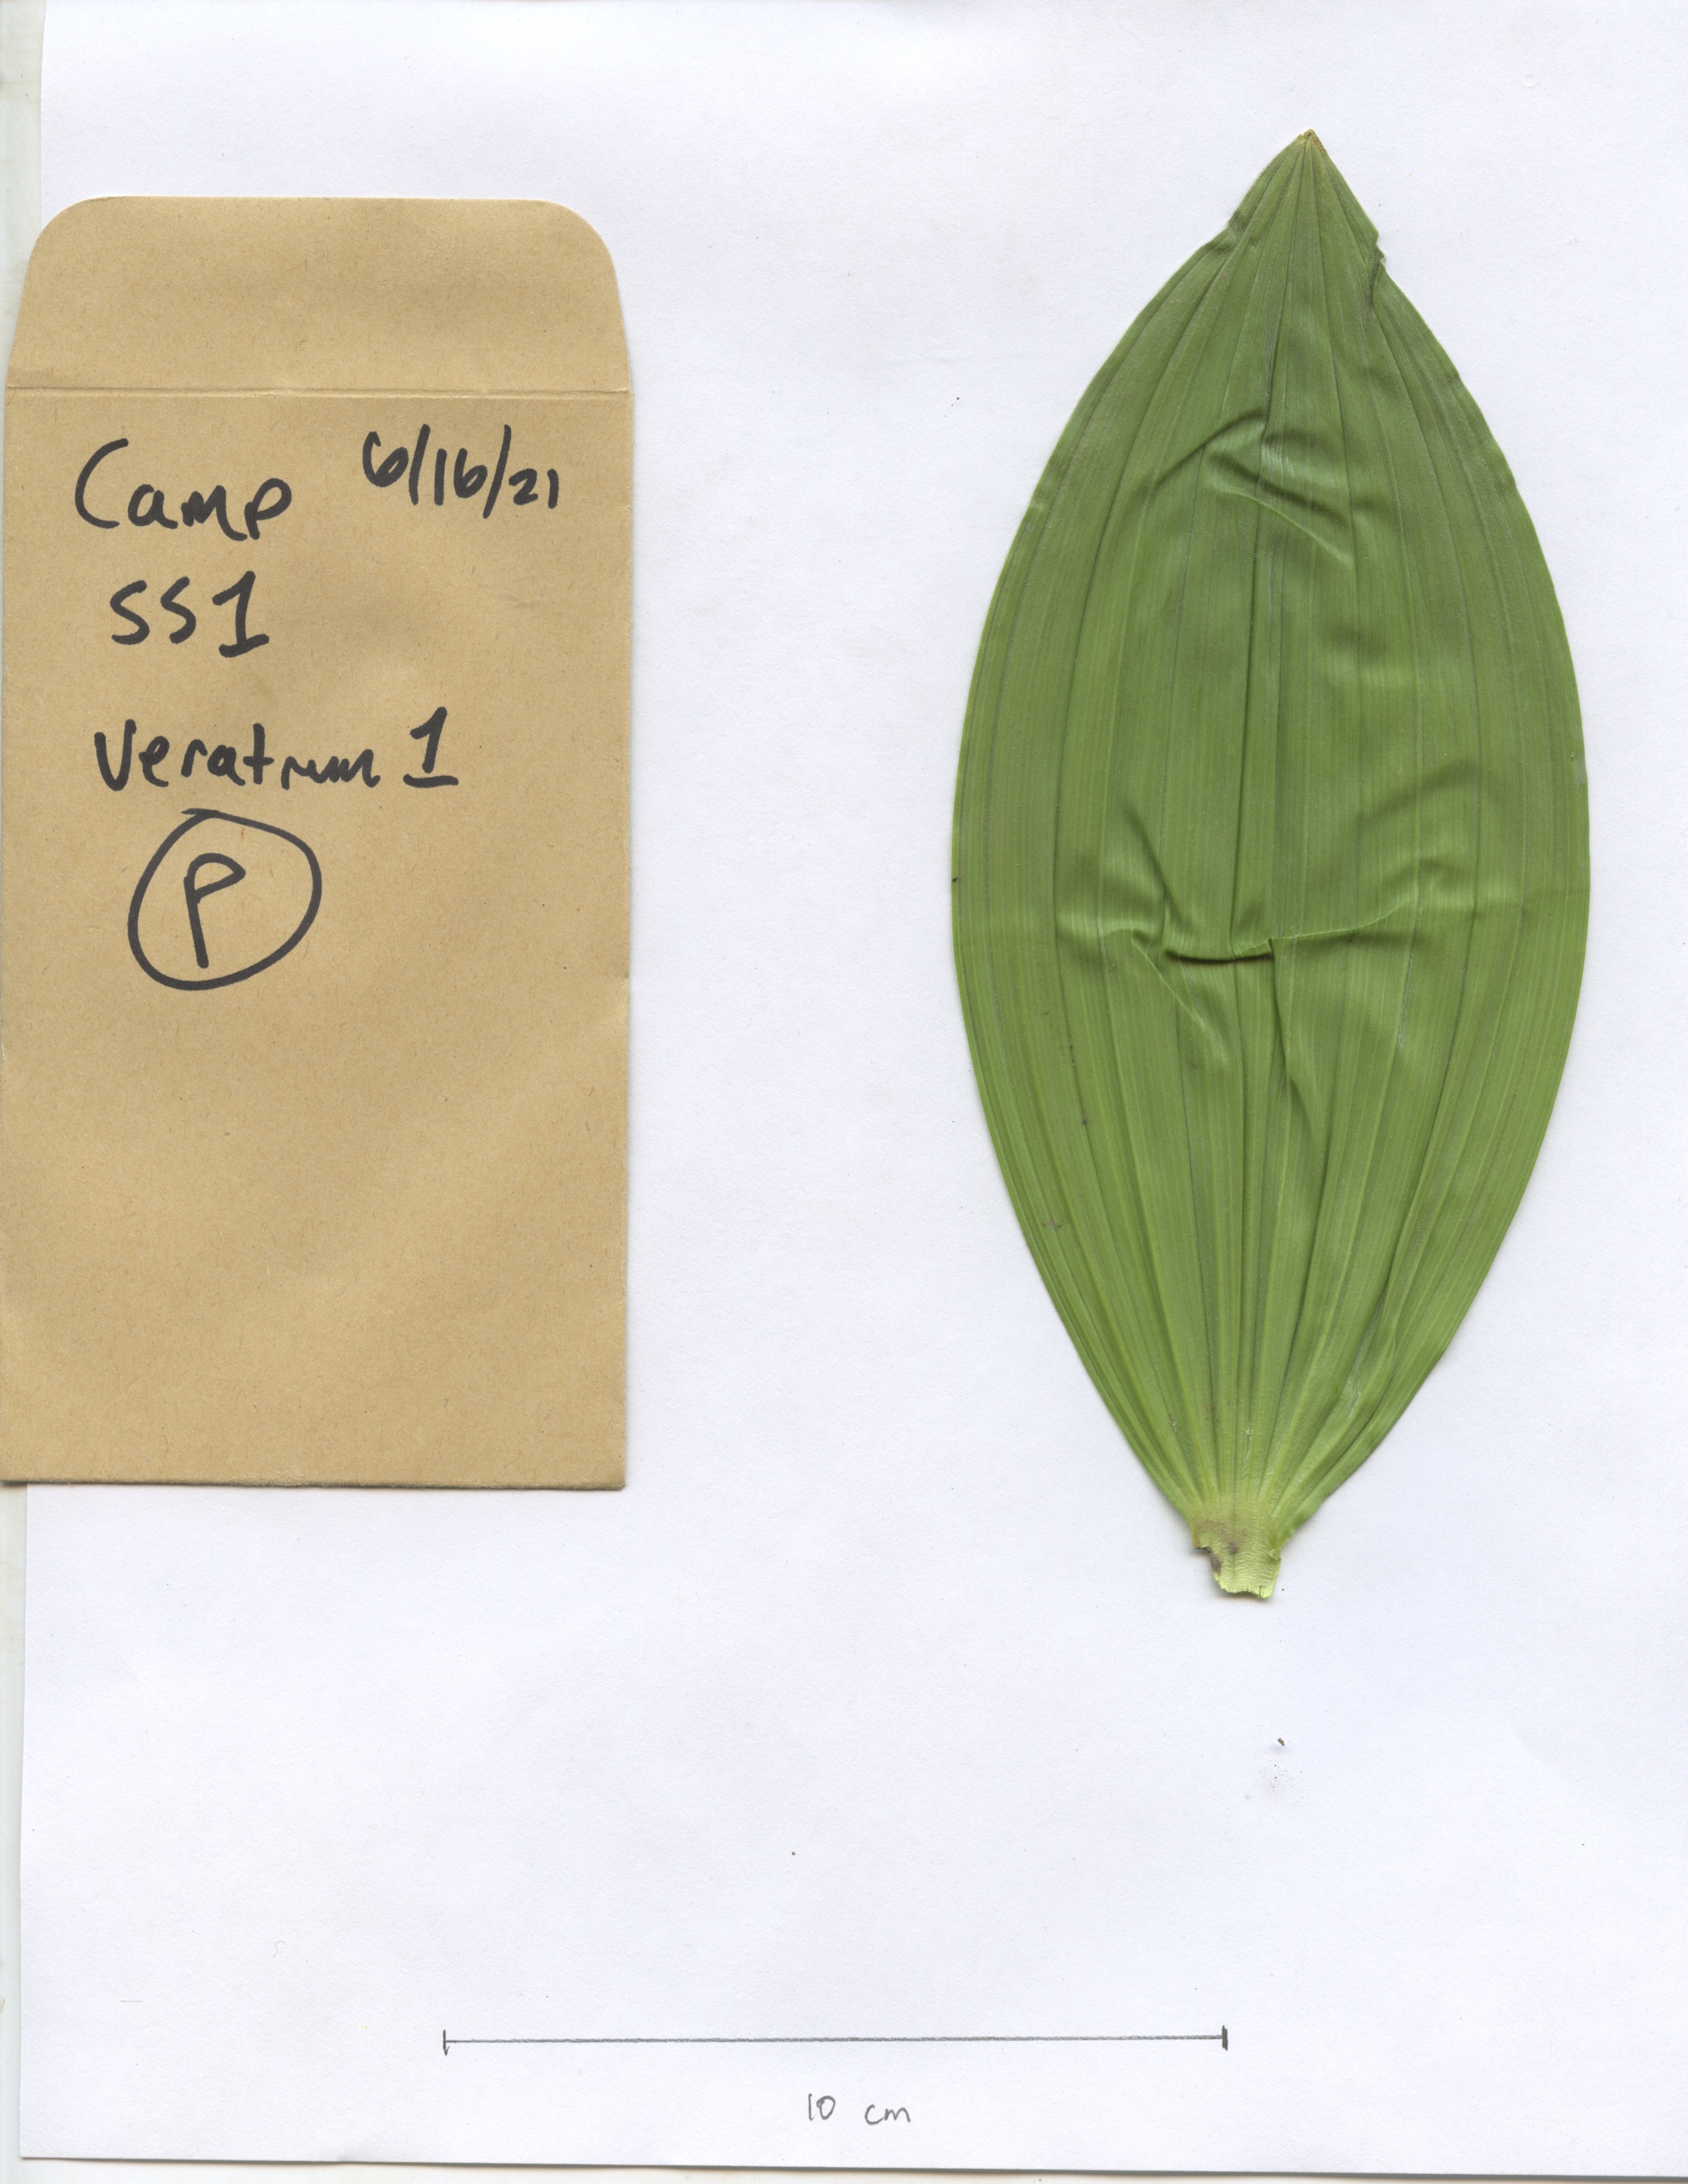 Camp 6/16/21
SS1
Veratrum 1
P
10 cm